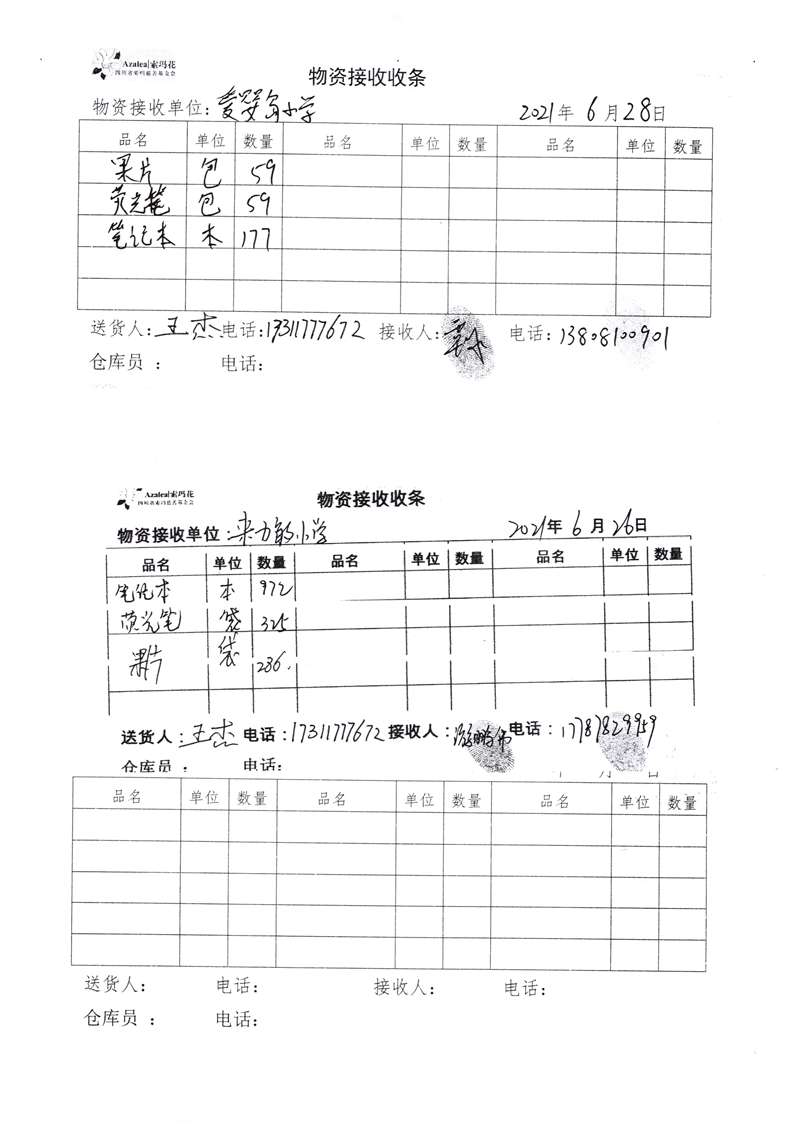 Azalea|索玛花
四川省索玛慈善基金会
物资接收收条
物资接收单位: 小学 2021年 6 月 28 日
品名 单位 数量 品名 单位 数量 品名 单位 数量
果片 包 59
荧光笔 包 59
笔记本 本 177
送货人: 王杰 电话: 17311777672 接收人: 电话: 13808100901
仓库员 : 电话:
Azalea|索玛花
四川省索玛慈善基金会
物资接收收条
物资接收单位: 来力 小学 2021年 6 月 26日
品名 单位 数量 品名 单位 数量 品名 单位 数量
笔记本 本 972
荧光笔 袋 325
果片 袋 236.
送货人: 王杰 电话: 17311777672 接收人: 电话: 17787829959
仓库员 : 电话:
月 日
品名 单位 数量 品名 单位 数量 品名 单位 数量
送货人: 电话: 接收人: 电话:
仓库员 : 电话: